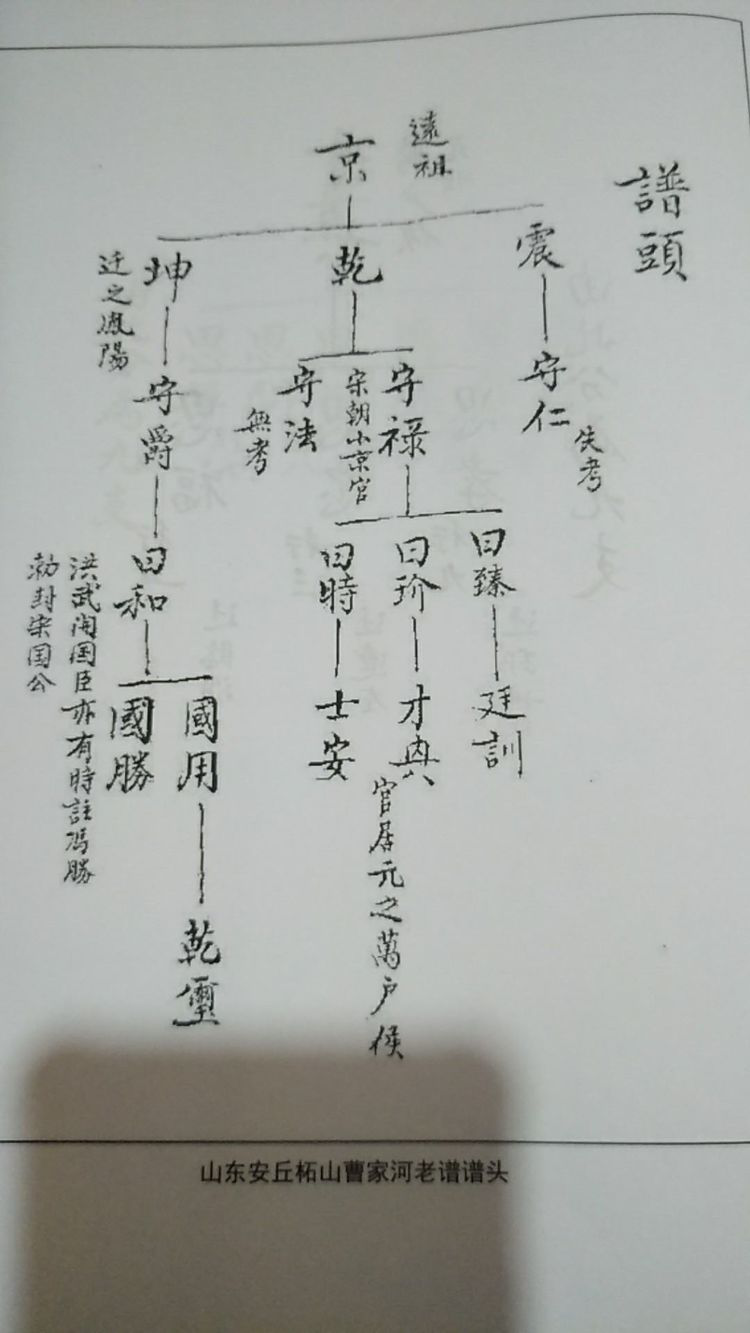 譜頭
遠祖
京
震
乾
坤
迁之鳳陽
守仁
失考
守祿
宋朝小京官
守法
無考
守爵
曰臻
曰玠
曰時
曰和
廷訓
才典
官居元之萬户侯
士安
國用
國勝
洪武開国臣亦有時註馮勝
勅封宋国公
乾璽
山东安丘柘山曹家河老谱谱头